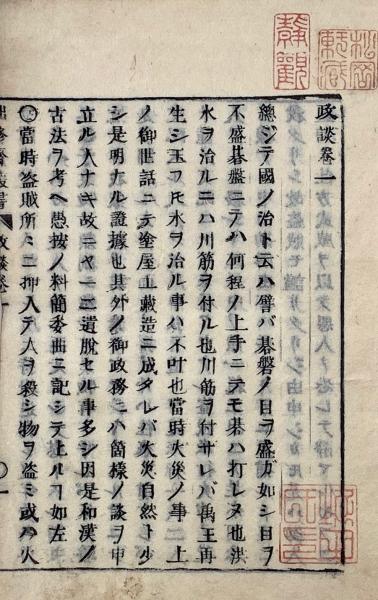 政談卷一
總ジテ國ノ治ト云ハ譬バ碁盤ノ目ヲ盛ガ如シ目ヲ
不盛碁盤ニテハ何程ノ上手ニテモ碁ハ打レヌ也洪
水ヲ治ルニハ川筋ヲ付ル也川筋ヲ付ザレバ禹王再
生シ玉フ𪜈水ヲ治ル事ハ不叶也當時火災ノ事ニ上
ノ御世話ニテ塗屋土藏造ニ成タレバ火災自然ト少
シ是明ナル證據也其外ノ御政務ニハ箇樣ノ談ヲ申
立ル人ナキ故ニヤ一二遺脫セル事多シ因是和漢ノ
古法ヲ考ヘ愚按ノ料簡委曲ニ記シテ上ルヿ如左
當時盜賊所々ニ押入テ人ヲ殺シ物ヲ盜ミ或ハ火
政談卷一
一